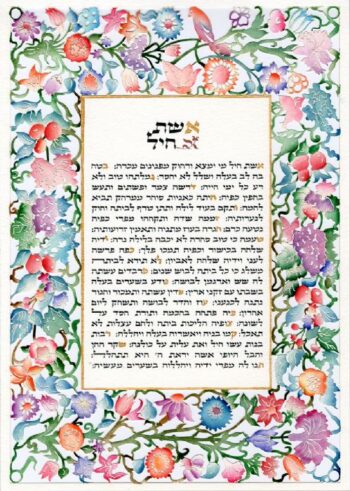 אשת
חיל
אשת חיל מי ימצא ורחוק מפנינים מכרה: בטח
בה לב בעלה ושלל לא יחסר: גמלתהו טוב ולא
רע כל ימי חייה: דרשה צמר ופשתים ותעש
בחפץ כפיה: היתה כאניות סוחר ממרחק תביא
לחמה: ותקם בעוד לילה ותתן טרף לביתה וחק
לנערותיה: זממה שדה ותקחהו מפרי כפיה
נטעה כרם: חגרה בעוז מתניה ותאמץ זרועותיה:
טעמה כי טוב סחרה לא יכבה בלילה נרה: ידיה
שלחה בכישור וכפיה תמכו פלך: כפה פרשה
לעני וידיה שלחה לאביון: לא תירא לביתה
משלג כי כל ביתה לבוש שנים: מרבדים עשתה
לה שש וארגמן לבושה: נודע בשערים בעלה
בשבתו עם זקני ארץ: סדין עשתה ותמכור וחגור
נתנה לכנעני: עוז והדר לבושה ותשחק ליום
אחרון: פיה פתחה בחכמה ותורת חסד על
לשונה: צופיה הליכות ביתה ולחם עצלות לא
תאכל: קמו בניה ויאשרוה בעלה ויהללה: רבות
בנות עשו חיל ואת עלית על כולנה: שקר החן
והבל היופי אשה יראת ה' היא תתהלל:
תנו לה מפרי ידיה ויהללוה בשערים מעשיה: